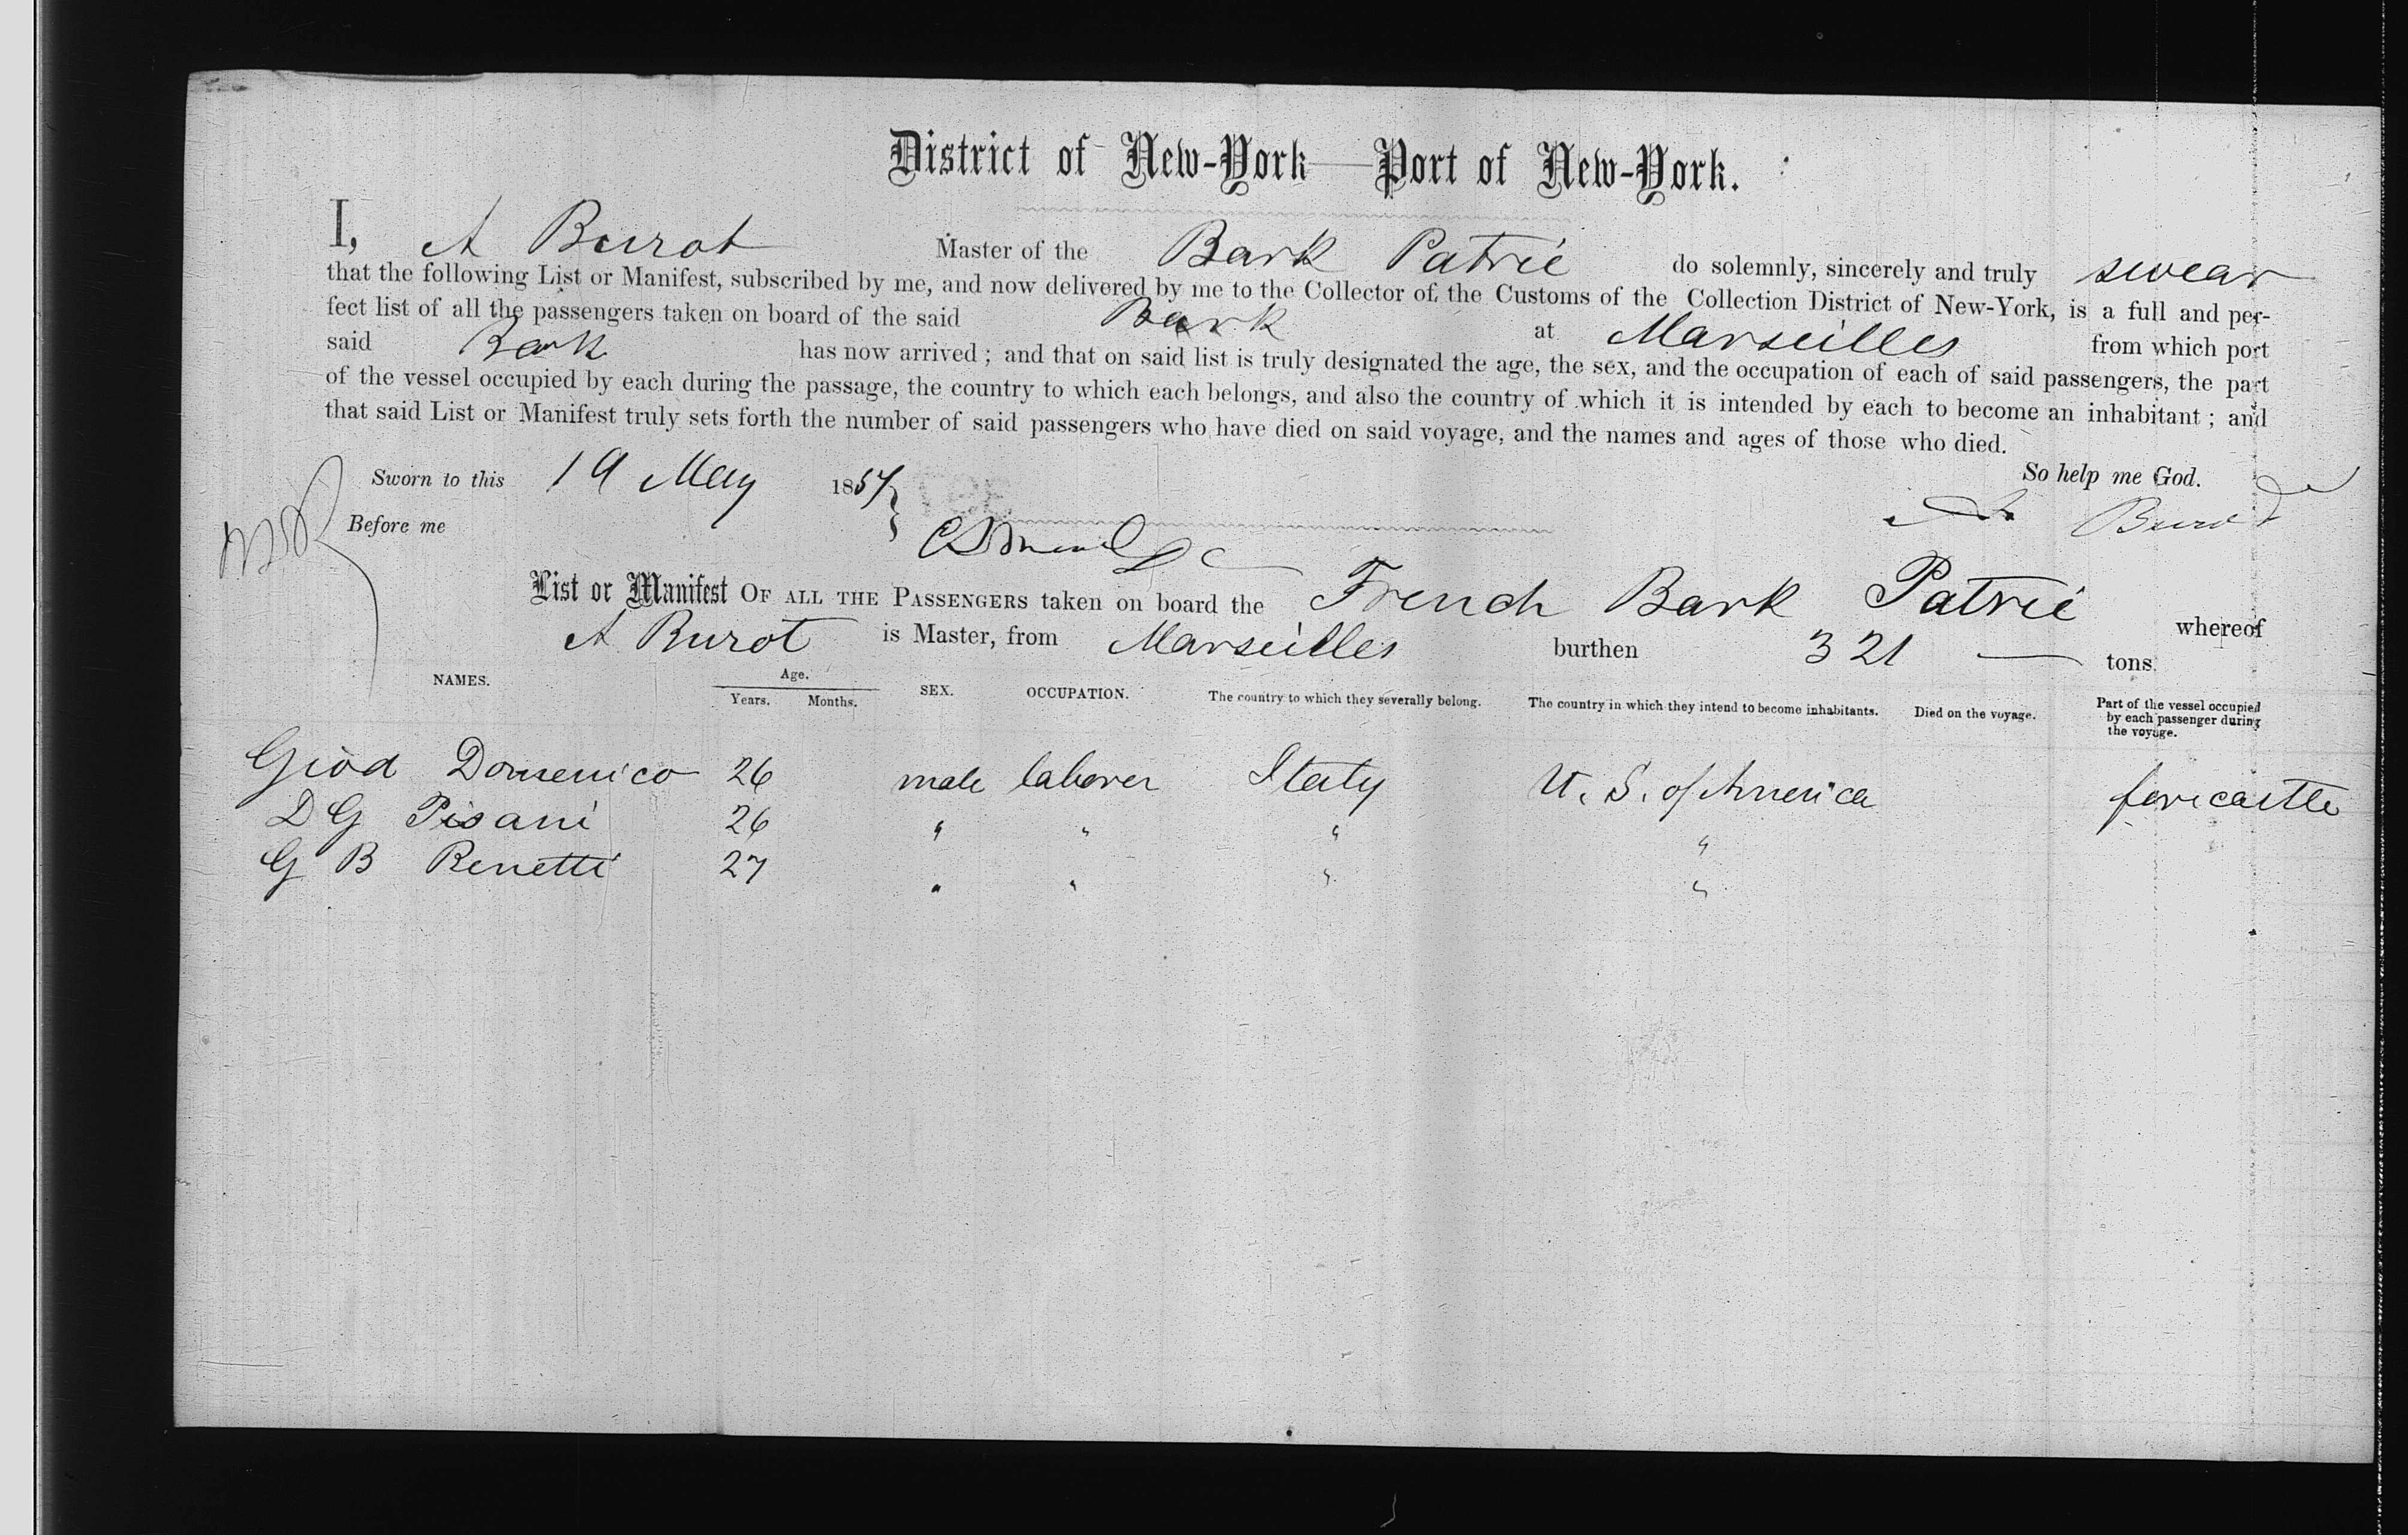 District of New-York—Port of New-York.
I, A Burot Master of the Bark Patrie do solemnly, sincerely and truly swear
that the following List or Manifest, subscribed by me, and now delivered by me to the Collector of the Customs of the Collection District of New-York, is a full and per-
fect list of all the passengers taken on board of the said Bark at Marseilles from which port
said Bark has now arrived; and that on said list is truly designated the age, the sex, and the occupation of each of said passengers, the part
of the vessel occupied by each during the passage, the country to which each belongs, and also the country of which it is intended by each to become an inhabitant; and
that said List or Manifest truly sets forth the number of said passengers who have died on said voyage, and the names and ages of those who died.
Sworn to this 19 May 1857 So help me God.
Before me A Burot
List or Manifest OF ALL THE PASSENGERS taken on board the French Bark Patrie whereof
A Burot is Master, from Marseilles burthen 321 — tons.
NAMES. Age. SEX. OCCUPATION. The country to which they severally belong. The country in which they intend to become inhabitants. Died on the voyage. Part of the vessel occupied by each passenger during the voyage.
Years. Months.
Giod Domenico 26 male laborer Italy U. S. of America forecastle
D G Pisani 26 " " " "
G B Renetti 27 " " " "